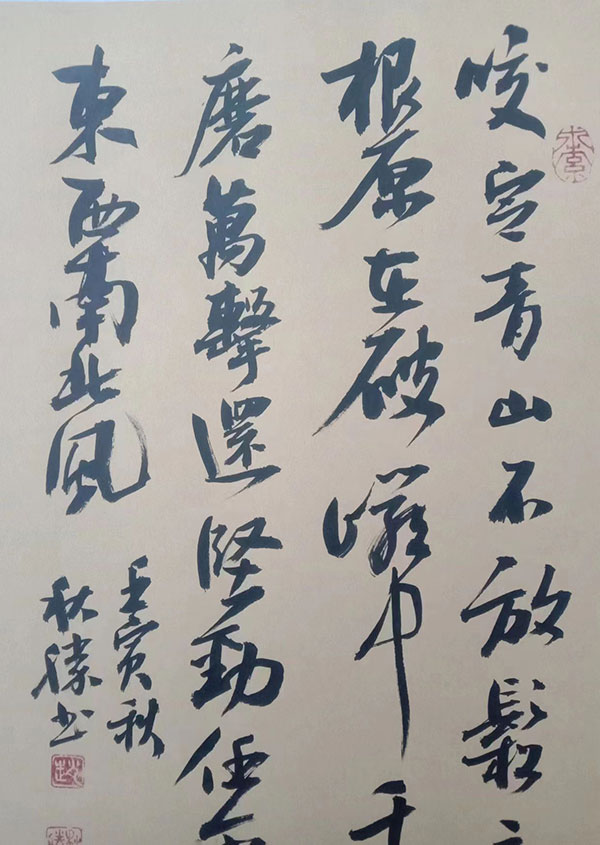 咬定青山不放鬆
根原在破巖中千
磨萬擊還堅勁任
東西南北風
壬寅秋
秋滕书